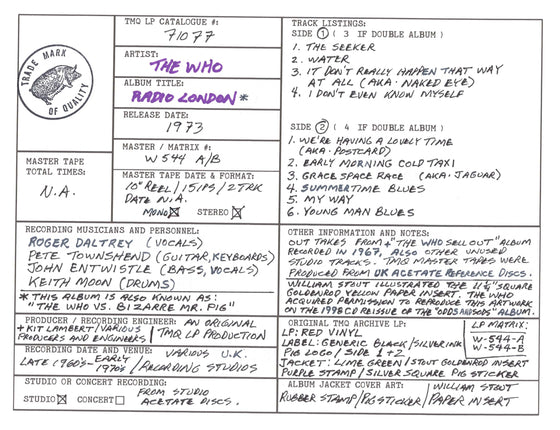 TRADE MARK
OF QUALITY
TMQ LP CATALOGUE #:
71077
ARTIST:
THE WHO
ALBUM TITLE:
RADIO LONDON *
RELEASE DATE:
1973
MASTER TAPE
TOTAL TIMES:
N.A.
MASTER / MATRIX #:
W 544 A/B
MASTER TAPE DATE & FORMAT:
10" REEL / 15 IPS / 2 TRK
DATE N.A.
MONO STEREO
TRACK LISTINGS:
SIDE 1 ( 3 IF DOUBLE ALBUM )
1. THE SEEKER
2. WATER
3. IT DON'T REALLY HAPPEN THAT WAY
AT ALL (AKA · NAKED EYE)
4. I DON'T EVEN KNOW MYSELF
SIDE 2 ( 4 IF DOUBLE ALBUM )
1. WE'RE HAVING A LOVELY TIME
(AKA · POSTCARD)
2. EARLY MORNING COLD TAXI
3. GRACE SPACE RACE (AKA · JAGUAR)
4. SUMMERTIME BLUES
5. MY WAY
6. YOUNG MAN BLUES
RECORDING MUSICIANS AND PERSONNEL:
ROGER DALTREY (VOCALS)
PETE TOWNSHEND (GUITAR, KEYBOARDS)
JOHN ENTWISTLE (BASS, VOCALS)
KEITH MOON (DRUMS)
* THIS ALBUM IS ALSO KNOWN AS:
"THE WHO VS. BIZARRE MR. PIG"
OTHER INFORMATION AND NOTES:
OUT TAKES FROM "THE WHO SELL OUT" ALBUM
RECORDED IN 1967, ALSO OTHER UNUSED
STUDIO TRACKS. TMQ MASTER TAPES WERE
PRODUCED FROM UK ACETATE REFERENCE DISCS.
WILLIAM STOUT ILLUSTRATED THE 11 ½" SQUARE
GOLDENROD YELLOW PAPER INSERT. THE WHO
ACQUIRED PERMISSION TO REPRODUCE THIS ARTWORK
ON THE 1998 CD REISSUE OF THE "ODDS AND SODS" ALBUM.
PRODUCER / RECORDING ENGINEER: AN ORIGINAL
+ KIT LAMBERT / VARIOUS TMQ LP PRODUCTION
PRODUCERS AND ENGINEERS
RECORDING DATE AND VENUE: VARIOUS U.K.
LATE 1960'S - EARLY 1970'S / RECORDING STUDIOS
STUDIO OR CONCERT RECORDING:
STUDIO CONCERT FROM STUDIO
ACETATE DISCS.
ORIGINAL TMQ ARCHIVE LP:
LP: RED VINYL
LABEL: GENERIC BLACK / SILVER INK
PIG LOGO / SIDE 1 + 2
JACKET: LIME GREEN / STOUT GOLDENROD INSERT
PURPLE STAMP / SILVER SQUARE PIG STICKER
LP MATRIX:
W-544-A
W-544-B
ALBUM JACKET COVER ART: WILLIAM STOUT
RUBBER STAMP / PIG STICKER / PAPER INSERT